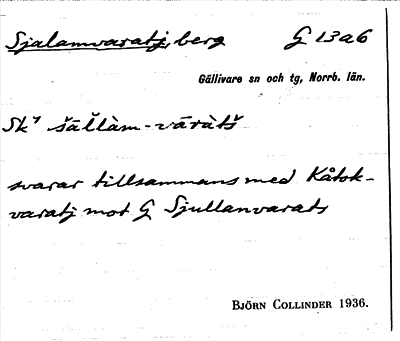 Sjalamvaratj, berg G 13a6
Gällivare sn och tg, Norrb. län.
Sk⁷ šāl̆làm-vāràtš̆
svarar tillsammans med Kåtok-
varatj mot G Sjullanvarats
BJÖRN COLLINDER 1936.